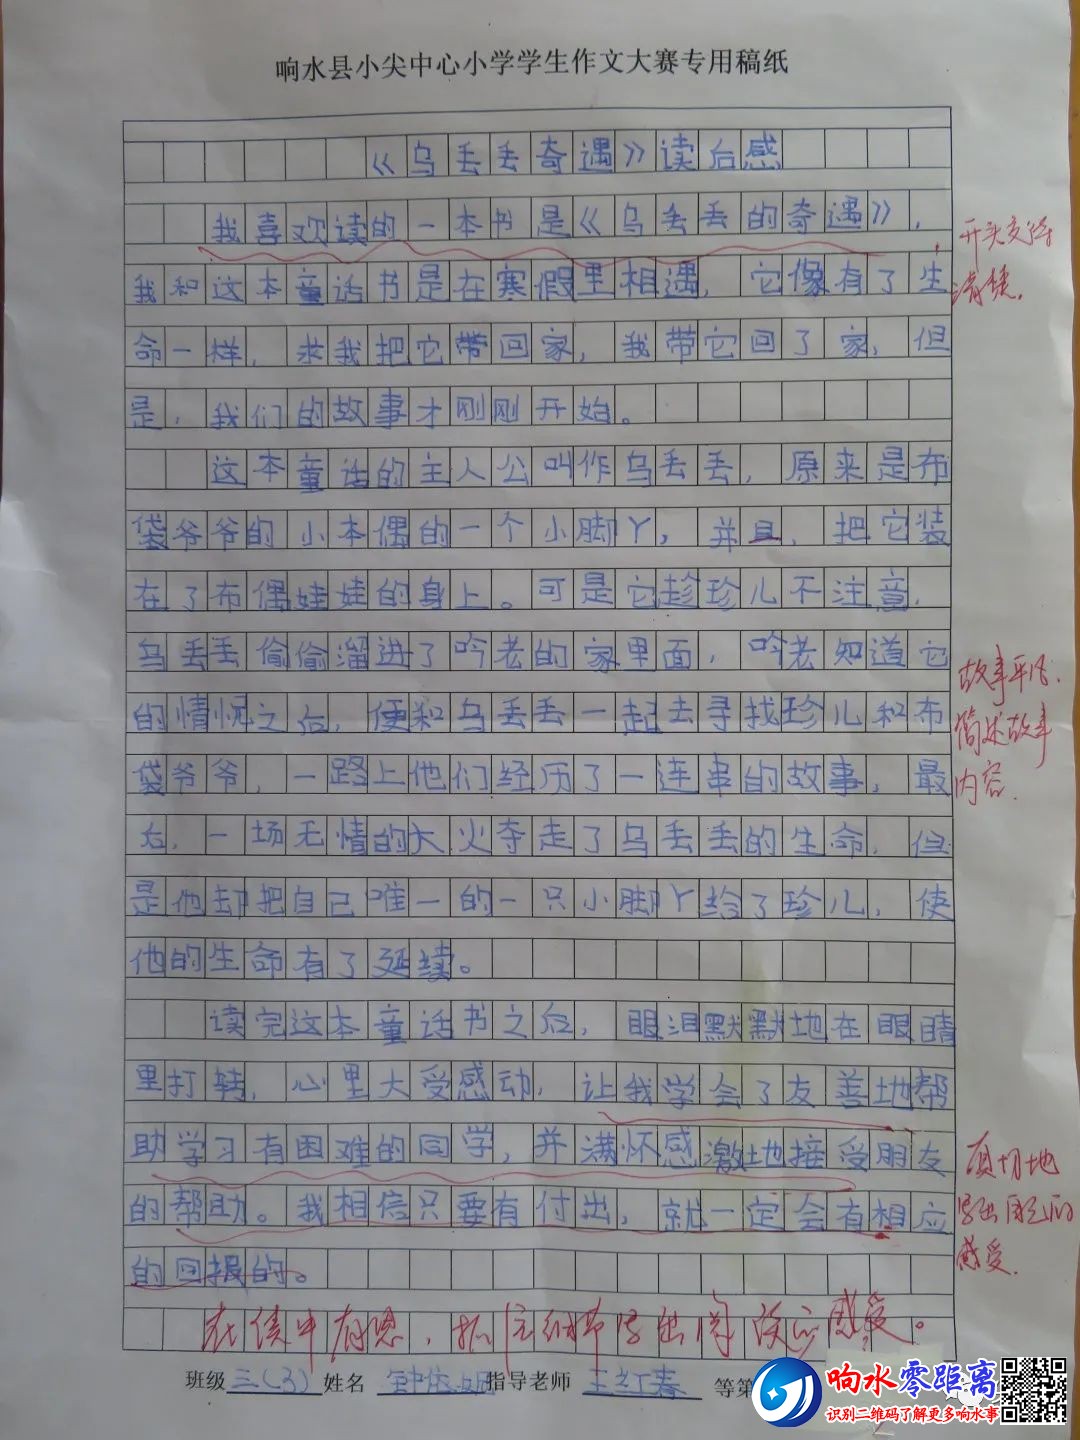 响水县小尖中心小学学生作文大赛专用稿纸
《乌丢丢奇遇》读后感
我喜欢读的一本书是《乌丢丢的奇遇》，
开头交待
我和这本童话书是在寒假里相遇，它像有了生
清楚.
命一样，求我把它带回家，我带它回了家，但
是，我们的故事才刚刚开始。
这本童话的主人公叫作乌丢丢，原来是布
袋爷爷的小木偶的一个小脚丫，并且，把它装
在了布偶娃娃的身上。可是它趁珍儿不注意，
乌丢丢偷偷溜进了吟老的家里面，吟老知道它
的情况之后，便和乌丢丢一起去寻找珍儿和布
简述故事
袋爷爷，一路上他们经历了一连串的故事，最
内容.
后，一场无情的大火夺走了乌丢丢的生命，但
是他却把自己唯一的一只小脚丫给了珍儿，使
他的生命有了延续。
读完这本童话书之后，眼泪默默地在眼睛
里打转，心里大受感动，让我学会了友善地帮
助学习有困难的同学，并满怀感激地接受朋友
真切地
的帮助。我相信只要有付出，就一定会有相应
写出自己的
感受.
的回报的。
在读中有思，抓住细节写出读后感受。
班级 三(3) 姓名 指导老师 王红春 等第
响水零距离
识别二维码了解更多响水事